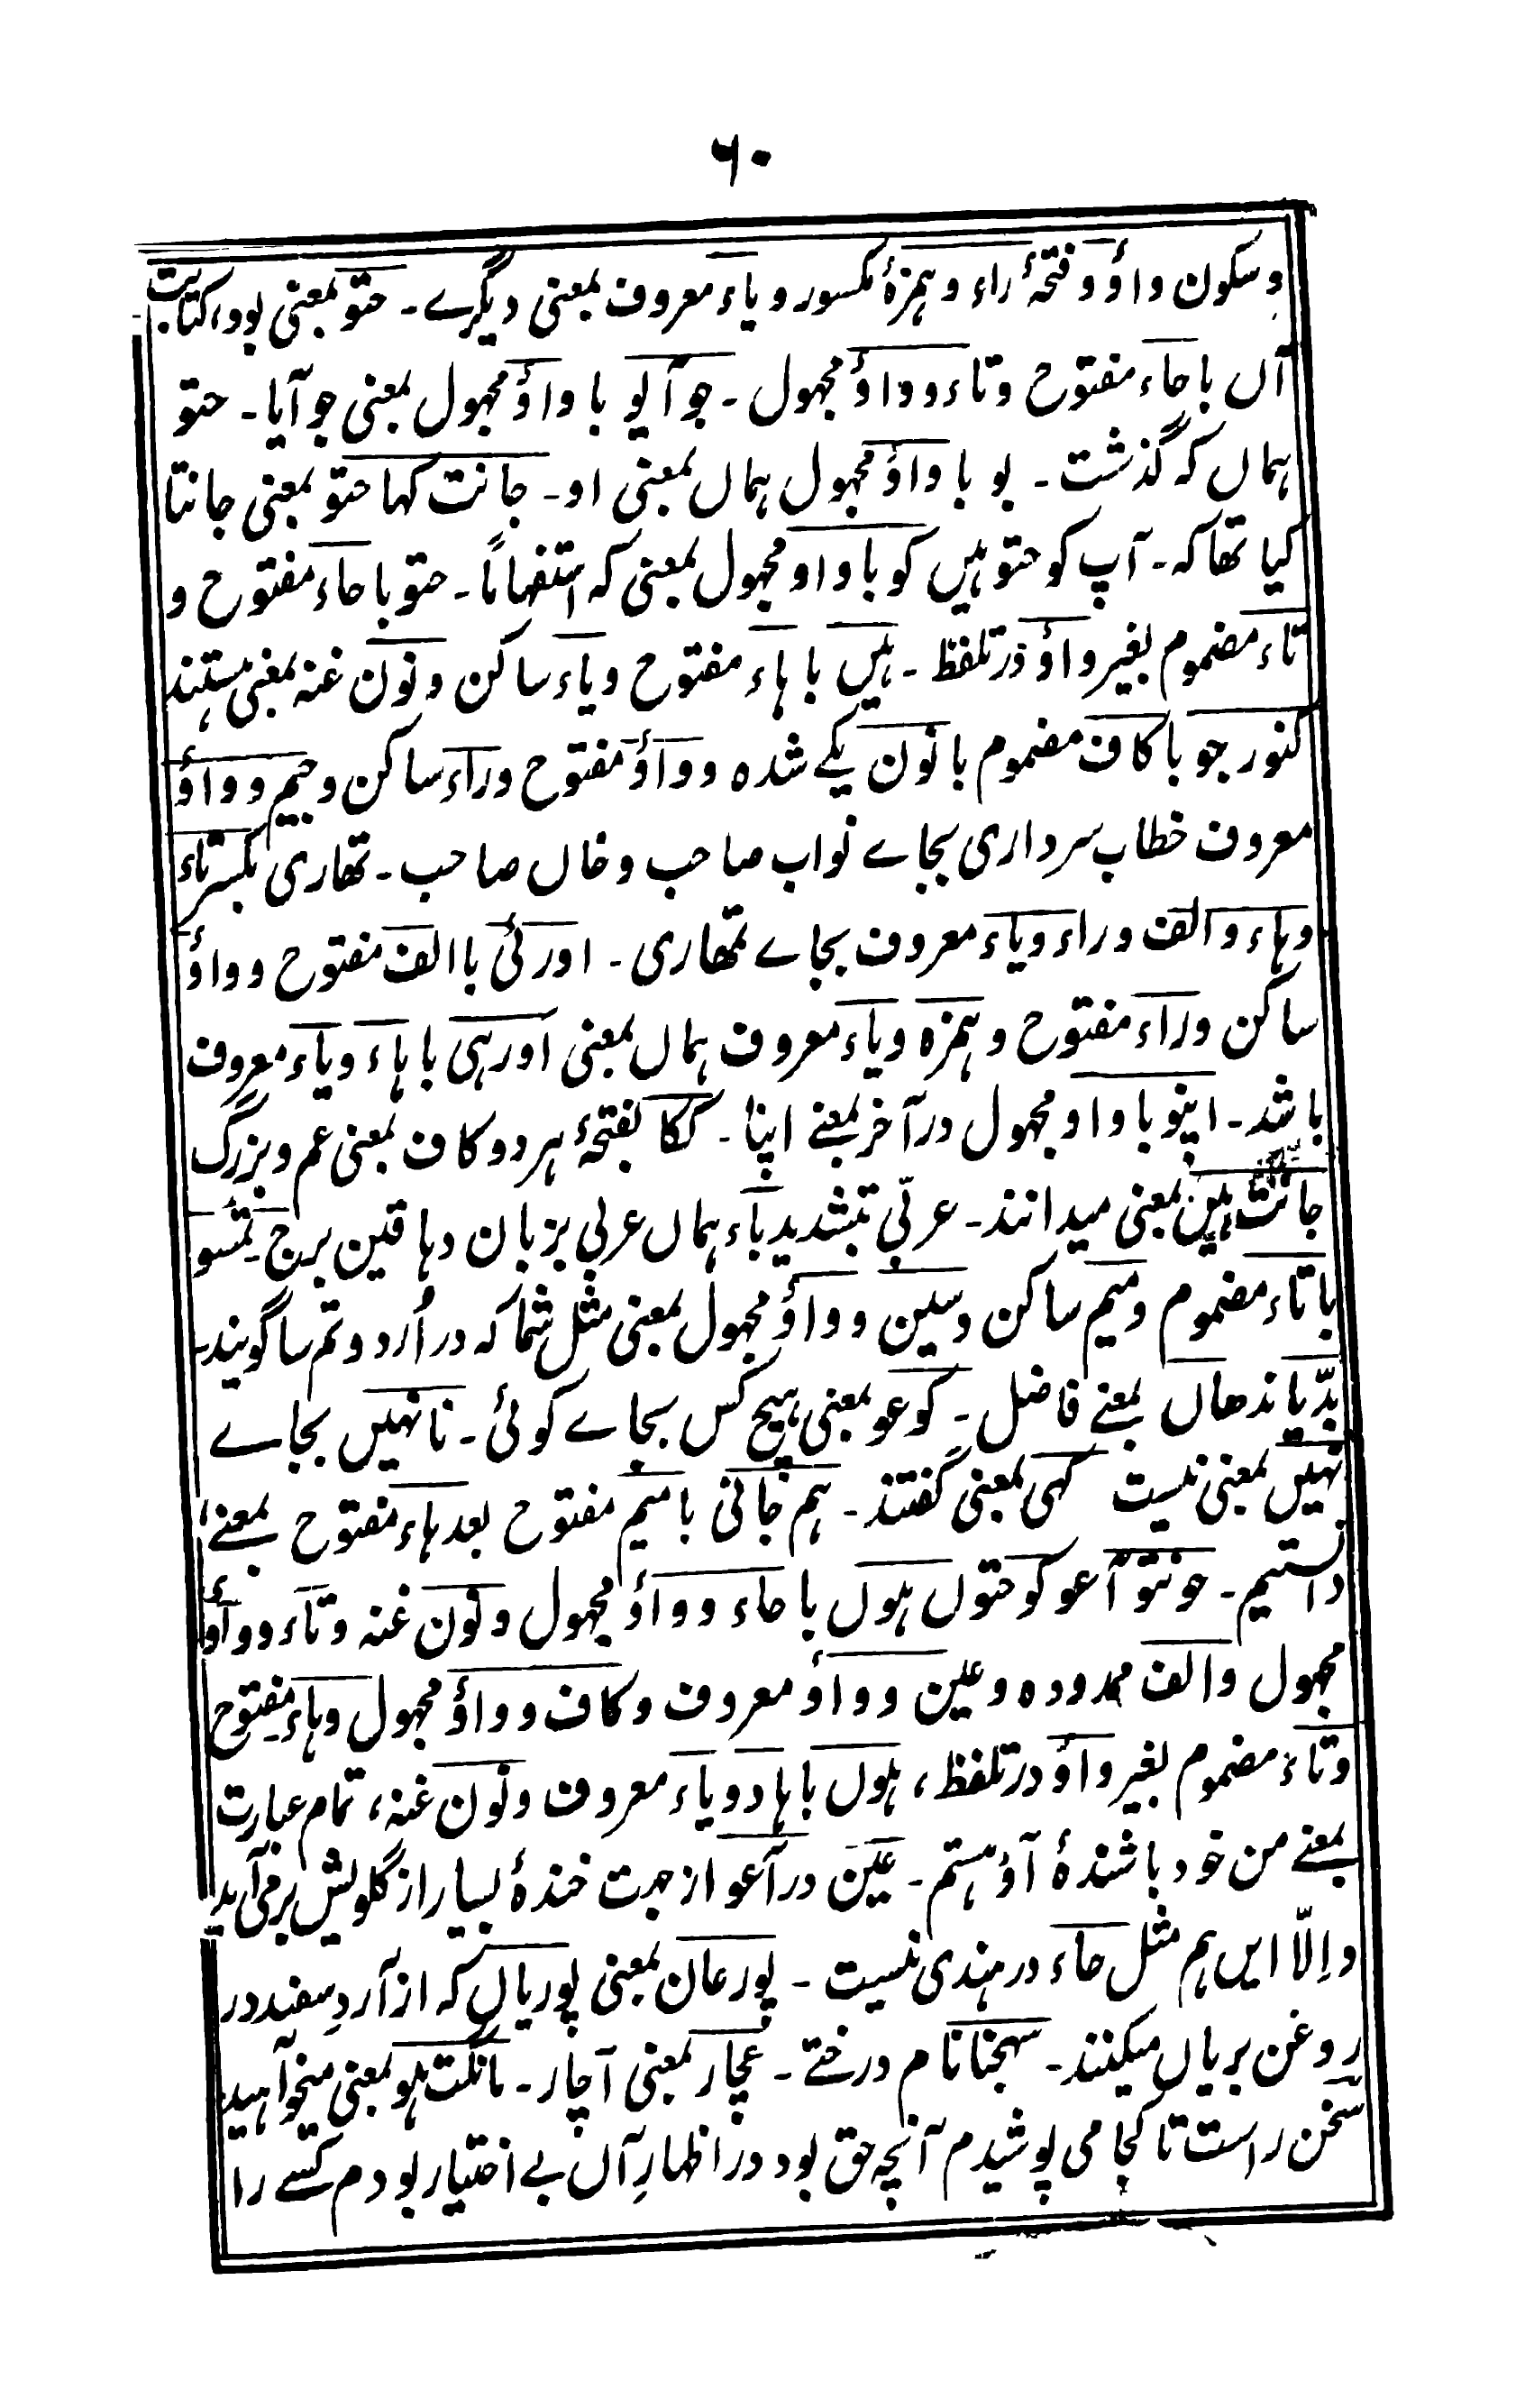 ۶۰
و سکون واؤ و فتحۂ راء و ہمزۂ مکسور و یاء معروف بمعنی دیگرے۔ حتو بمعنی بود، کتابت
آں با حاء مفتوح و تاء و واؤ مجہول۔ جو آیو با واؤ مجہول بمعنی جو آیا۔ حتو
ہماں کہ گذشت۔ بو با واؤ مجہول ہماں بمعنی او۔ جانت کہا حتو بمعنی جانتا
کیا تھا کہ۔ آپ کو حتو ہیں کو با واو مجہول بمعنی کہ استفہاماً۔ حتو با حاء مفتوح و
تاء مضموم بغیر واؤ در تلفظ۔ ہیں با ہاء مفتوح و یاء ساکن و نون غنہ بمعنی ہستند
کنور جو با کاف مضموم با نون یکے شدہ و واؤ مفتوح و راء ساکن و جیم و واؤ
معروف خطاب سرداری بجاے نواب صاحب و خاں صاحب۔ تھاری بکسر تاء
و ہاء و الف و راء و یاء معروف بجاے تمھاری۔ اورئی با الف مفتوح و واؤ
ساکن و راء مفتوح و ہمزہ و یاء معروف ہماں بمعنی اور ہی با ہاء و یاء معروف
باشد۔ اپنو با واو مجہول در آخر بمعنے اپنا۔ ککا بفتحۂ ہر دو کاف بمعنی عم و بزرگ
جانت ہیں بمعنی میدانند۔ عربّی بتشدید باء ہماں عربی بزبان دہاقین برج۔ تمسو
با تاء مضموم و میم ساکن و سین و واؤ مجہول بمعنی مثل شما کہ در اُردو تم سا گویند
بدّیاندھاں بمعنے فاضل۔ کوعو بمعنی ہیچ کس بجاے کوئی۔ نانہیں بجاے
نہیں بمعنی نیست کہی بمعنی گفتند۔ ہم جانی با میم مفتوح بعد ہاء مفتوح بمعنے
دانستیم۔ حونتو آعو کو حتوں ہوں با حاء و واؤ مجہول و نون غنہ و تاء و واؤ
مجہول و الف ممدودہ و عین و واؤ معروف و کاف و واؤ مجہول و ہاء مفتوح
و تاء مضموم بغیر واؤ در تلفظ، ہوں با ہا و و یاء معروف و نون غنہ، تمام عبارت
بمعنے من خود باشندۂ آؤ ہستم۔ عین در آعو از جہت خندۂ بسیار از گلویش برمی آید
و اِلّا ایں ہم مثل حاء در ہندی نیست۔ پورعان بمعنی پوریاں کہ از آردِ سفند در
روغن بریاں میکنند۔ سہجنا نام درختے۔ عچار بمعنی آچار۔ مانگت ہو بمعنی میخواہید
سخن راست تا کجا می پوشیدم آنچہ حق بود در اظہارِ آں بے اختیار بودم کسے را